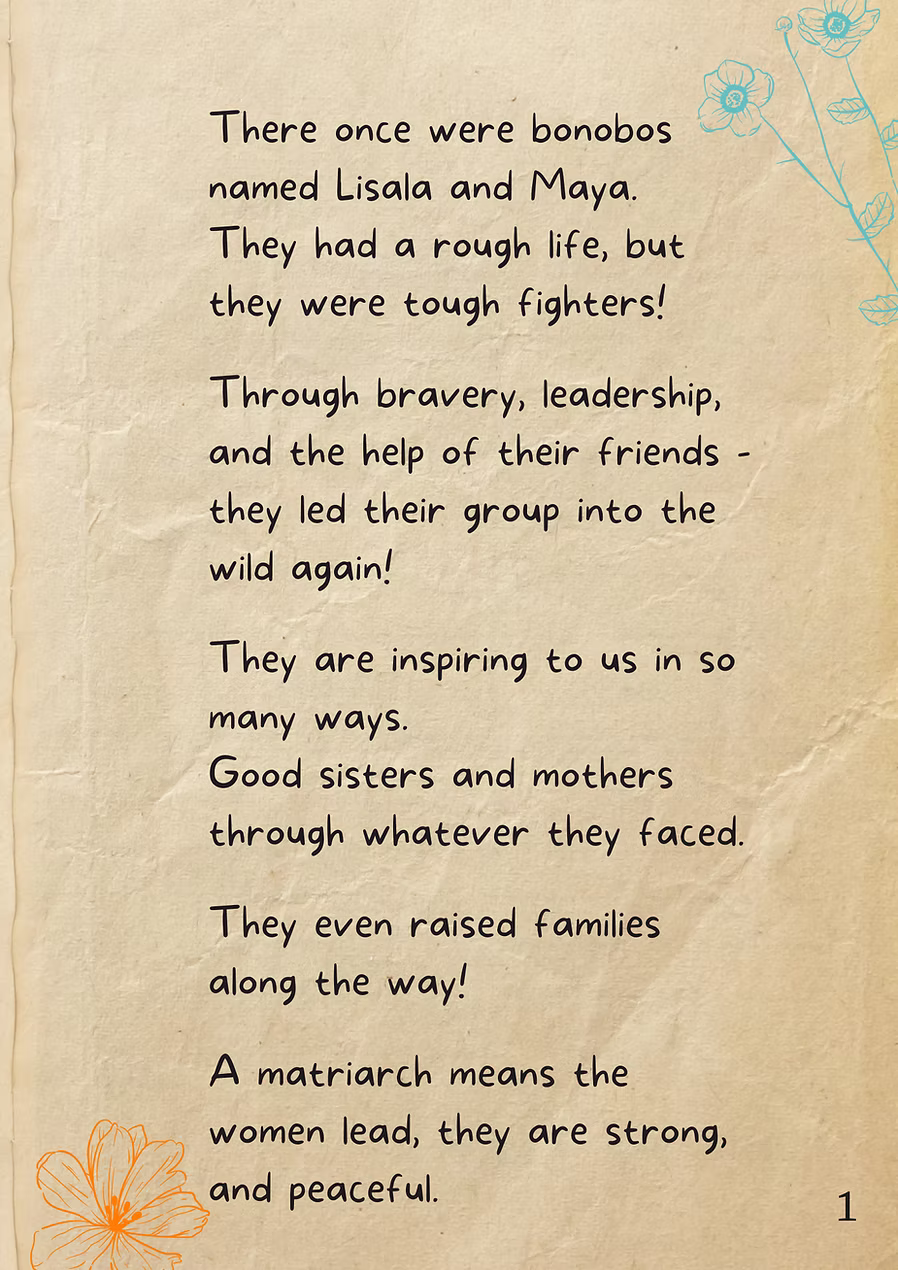 There once were bonobos
named Lisala and Maya.
They had a rough life, but
they were tough fighters!
Through bravery, leadership,
and the help of their friends -
they led their group into the
wild again!
They are inspiring to us in so
many ways.
Good sisters and mothers
through whatever they faced.
They even raised families
along the way!
A matriarch means the
women lead, they are strong,
and peaceful.
1